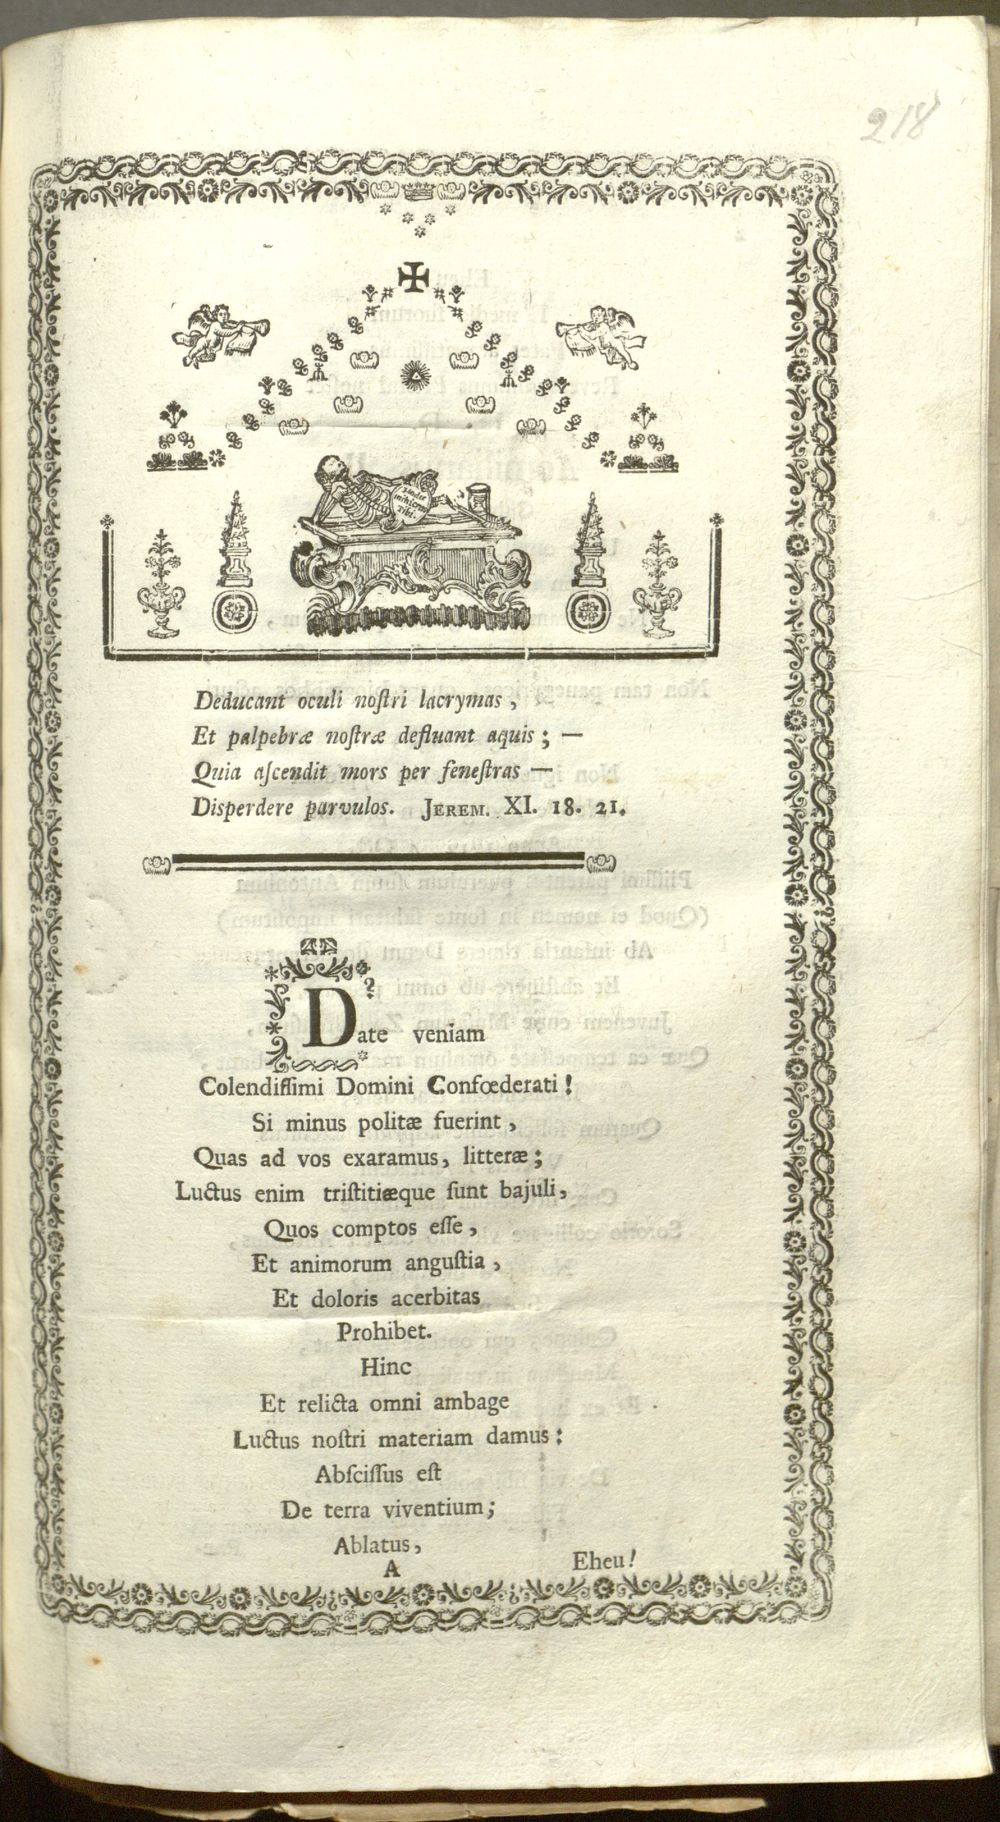 218
hodie
mihi cras
Tibi.
Deducant oculi noſtri lacrymas,
Et palpebræ noſtræ defluant aquis; —
Quia aſcendit mors per feneſtras —
Disperdere parvulos. JEREM. XI. 18. 21.
Date veniam
Colendiſſimi Domini Confœderati!
Si minus politæ fuerint,
Quas ad vos exaramus, litteræ;
Luctus enim triſtitiæque ſunt bajuli,
Quos comptos eſſe,
Et animorum anguſtia,
Et doloris acerbitas
Prohibet.
Hinc
Et relicta omni ambage
Luctus noſtri materiam damus:
Abſciſſus eſt
De terra viventium;
Ablatus,
A
Eheu!